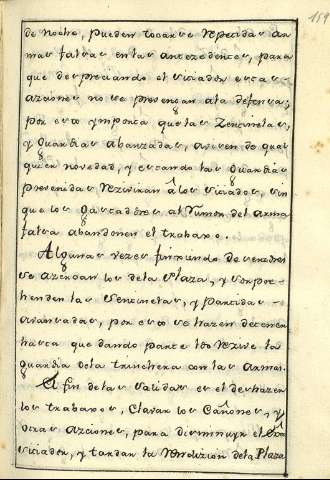 159
de noche, pueden tocarse repetidas ar
mas falsas en las antecedentes, para
que despreciando el sitiador estas
acciones no se prevengan a la defensa;
por esto ymporta que las Zentinelas,
y Guardias abanzadas, avisen de qual
quier novedad, y estando las Guardias
prevenidas resiviran â los sitiados, sin
que los Gastadores al rumor del arma
falsa abandonen el trabaxo.
Algunas vezes finxiendo de
se azercan los de la Plaza, y sorpre-
henden las Sentinelas, y partidas
avanzadas, por esto se hazen detener
hasta que dando parte los resive la
guardia de la trinchera con las armas.
El fin de las salidas es el deshazer
los trabaxos, Clavar los Cañones, y
otras acziones, para disminuyr el
sitiador, y tardar la rendizion de la Plaza